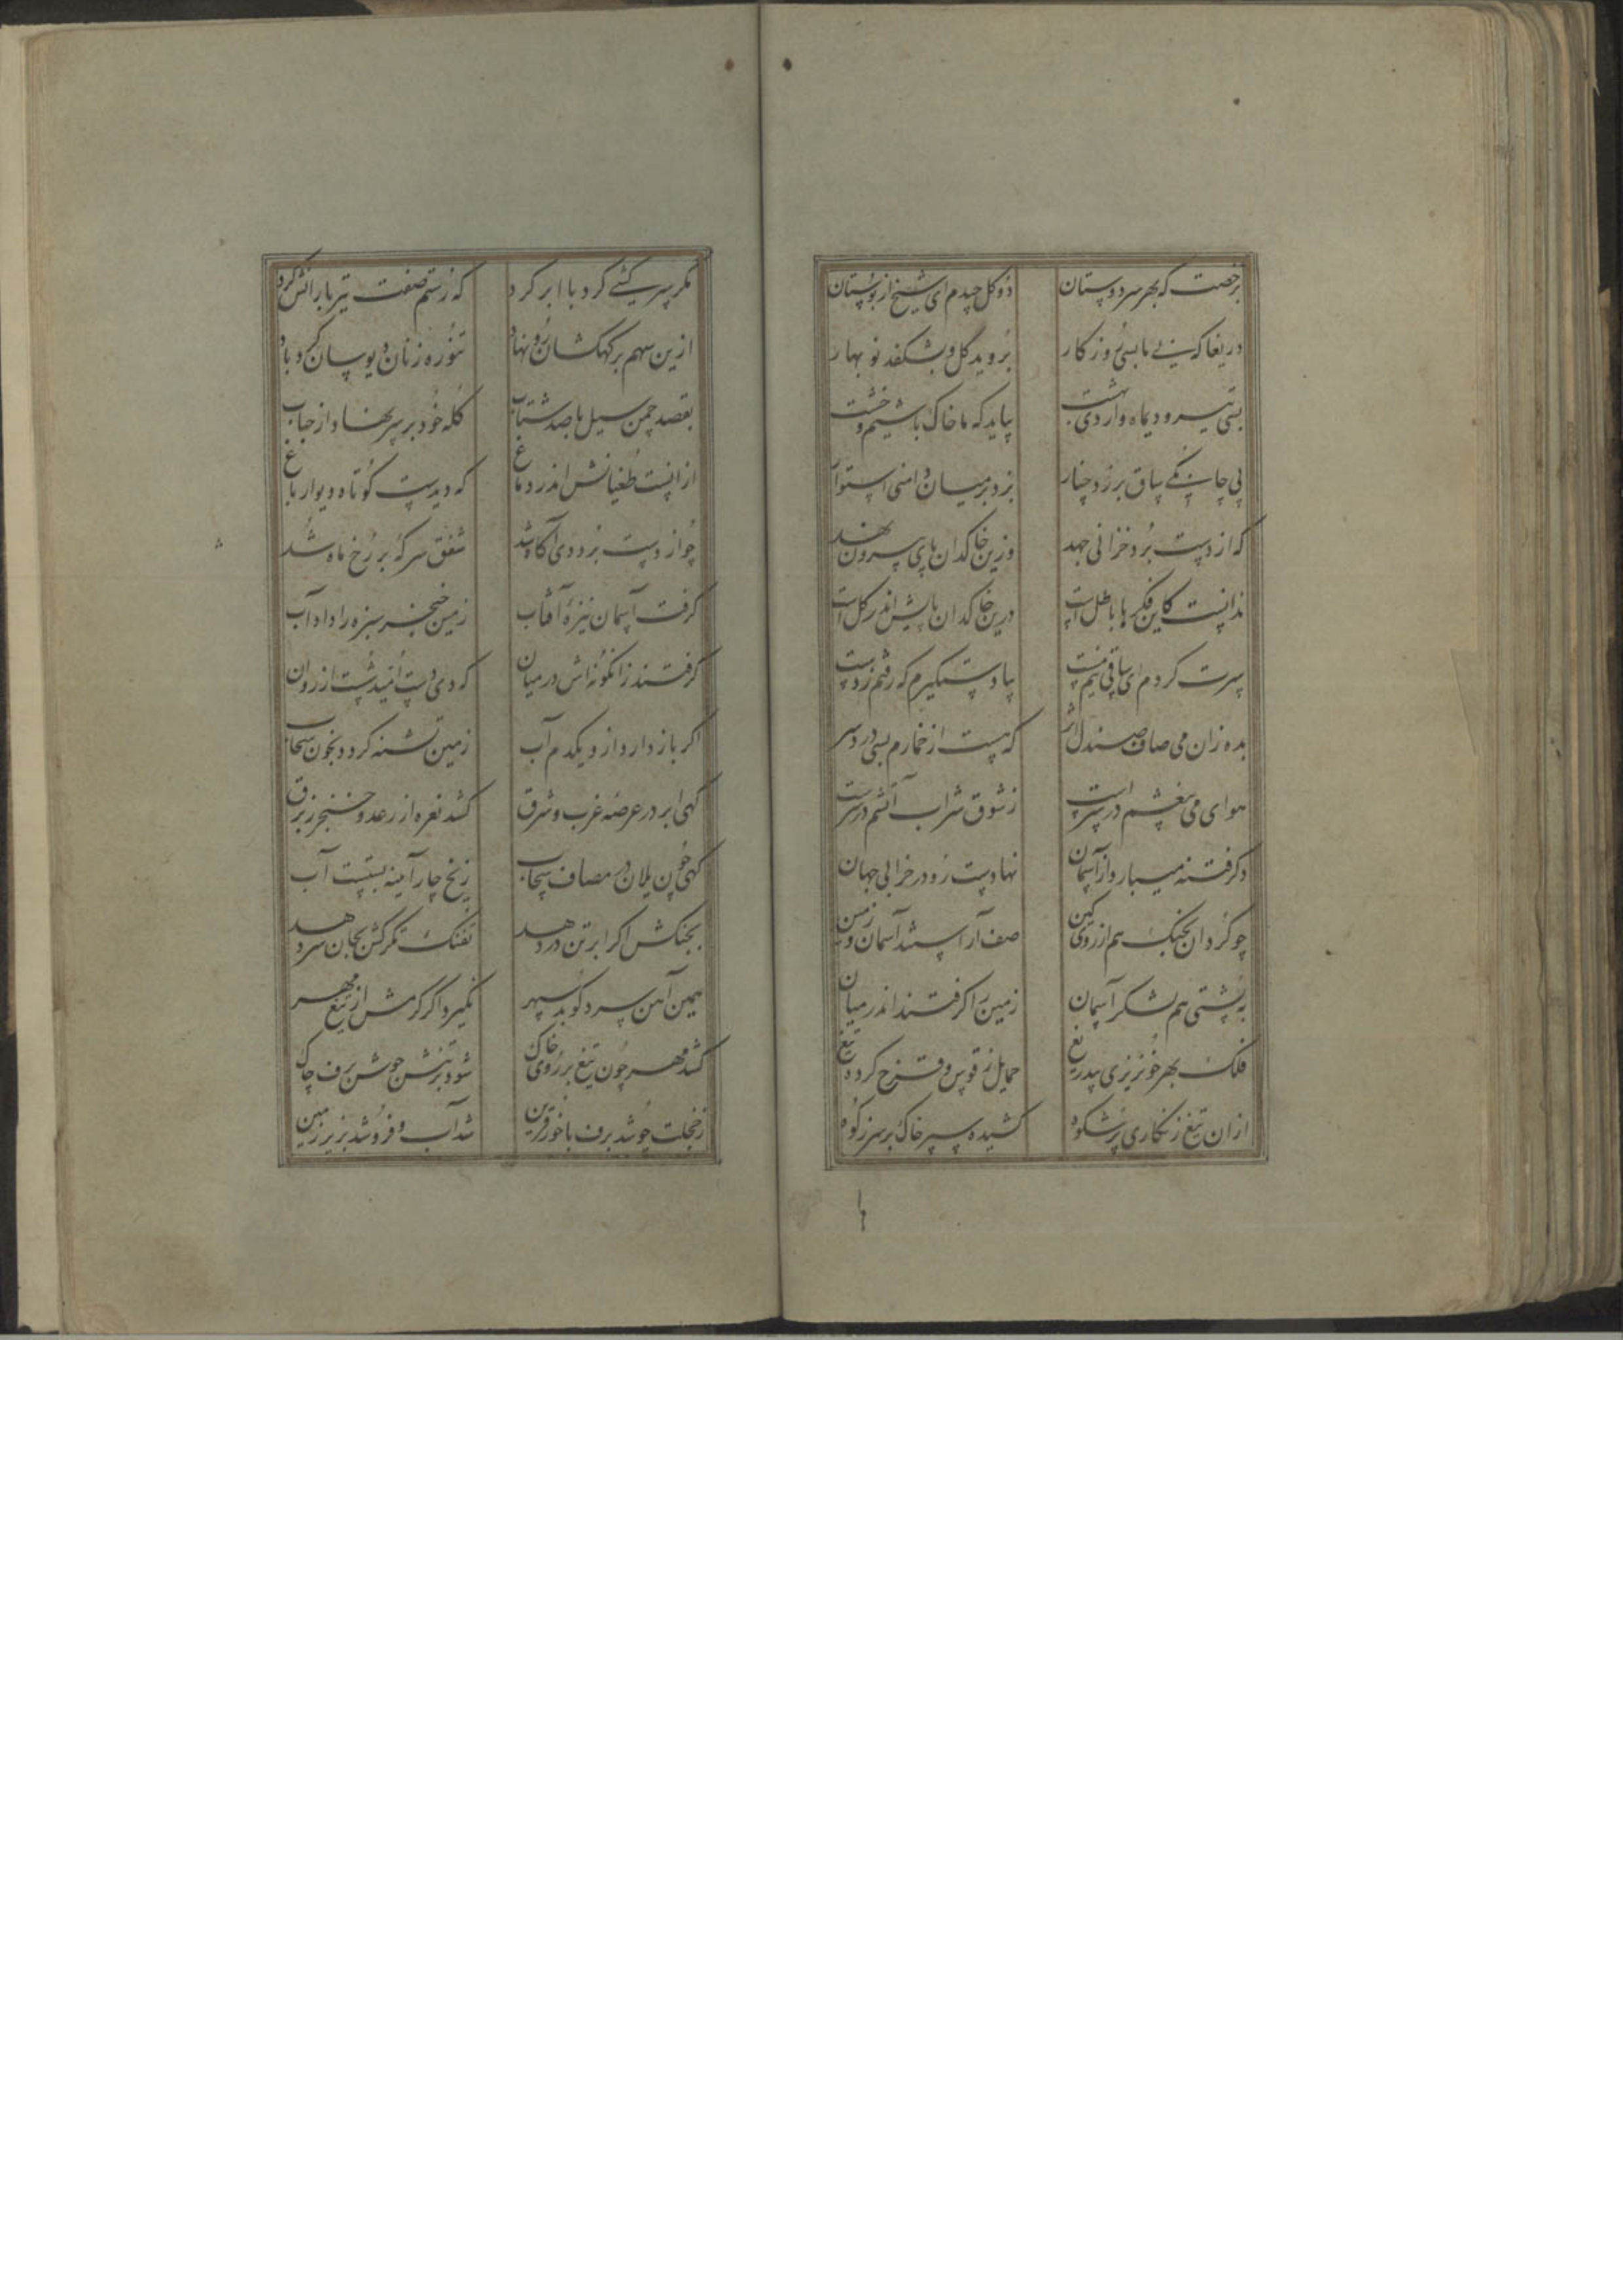 برخصت که بهر سر دوستان دو گل چیدم ای شیخ از بوستان
دریغا که بی ما بسی روزگار بروید گل و بشکفد نوبهار
بسی تیر و دیماه و اردی بهشت بیاید که ما خاک باشیم و خشت
پی چابکی ساق برزد چنار بزد بر میان دامنی استوار
که از دست برد خزانی جهد وزین خاکدان پای بیرون نهد
ندانست کاین فکرها باطل است درین خاکدان پایش اندر گل است
سرت گردم ای ساقی نیم مست بیا دستگیرم که رفتم ز دست
بده زان می صاف صندل اثر که هست از خمارم بسی درد سر
هوای می بیغشم در سر است ز شوق شراب آتشم در سر است
دگر فتنه میبارد از آسمان نهادست رو در خرابی جهان
چو گردان بجنگ هم از روی کین صف آراستند آسمان و زمین
به پشتی هم لشکر آسمان زمین را گرفتند اندر میان
فلک بهر خونریزی بیدریغ حمایل ز قوس و قزح کرده تیغ
ازان تیغ زنگاری پرشکوه کشیده سپر خاک بر سر ز کوه
مگر سرکشی کرد با ابر گرد که رستم صفت تیر بارانش کرد
ازین سهم بر کهکشان رو نهاد تنوره زنان دیوسان گردباد
بقصد چمن سیل با صد شتاب کله خود بر سر نهاد از حباب
ازانست طغیانش اندر دماغ که دیدست کوتاه دیوار باغ
چو از دست برد دی آگاه شد شفق سرکه بر رخ ماه شد
گرفت آسمان نیزه آفتاب زمین خنجر سبزه را داد آب
گرفتند زانگونه اش در میان که دی دست امید شست از روان
اگر باز دارد ازو یکدم آب زمین تشنه گردد بخون سحاب
گهی ابر در عرصه غرب و شرق کشد نعره از رعد و خنجر ز برق
گهی خون یلان در مصاف سحاب ز یخ چار آیینه بستست آب
بجنگش اگر ابر تن در دهد تفنگ تگرگش بجان سر دهد
همین آهن سرد کوبد سپهر نگیرد اگر گرمش از تیغ مهر
کشد مهر چون تیغ بر روی خاک شود بر تنش جوشن برف چاک
ز خجلت چو شد برف با خور قرین شد آب و فرو شد بزیر زمین